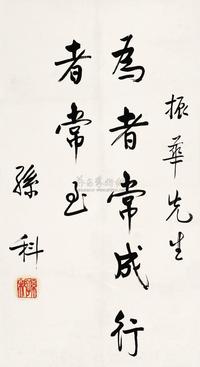 振華先生
為者常成行
者常至
孫科